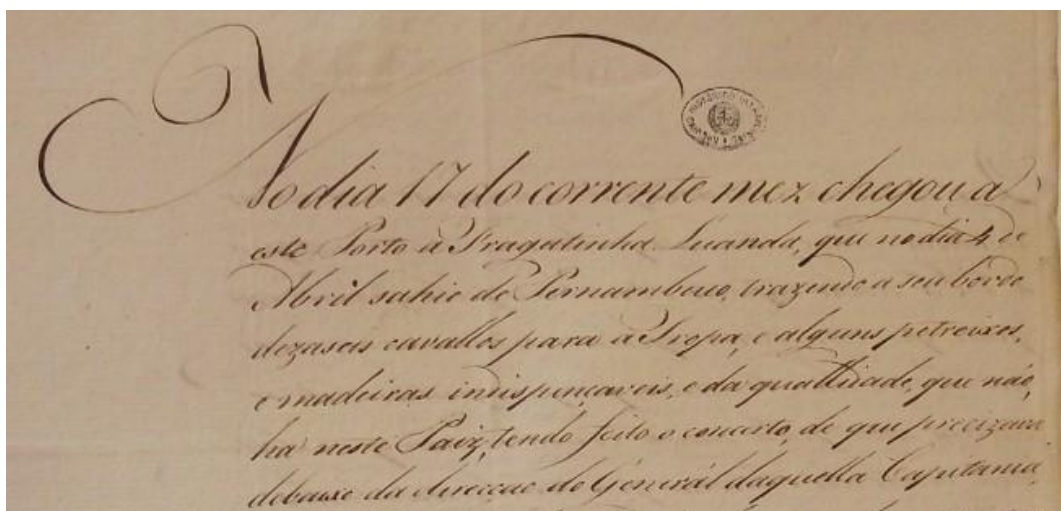 No dia 17 do corrente mez chegou a
este Porto a Fragatinha Luanda, que no dia 4 de
Abril sahio de Pernambuco, trazendo a seu bordo
dezaseis cavallos para a Tropa, e alguns petreixos,
e madeiras indispençaveis, e da quallidade, que não
ha neste Paiz, tendo feito o concerto, de que precizava
debaixo da direcçao do Generál daquella Capitania,